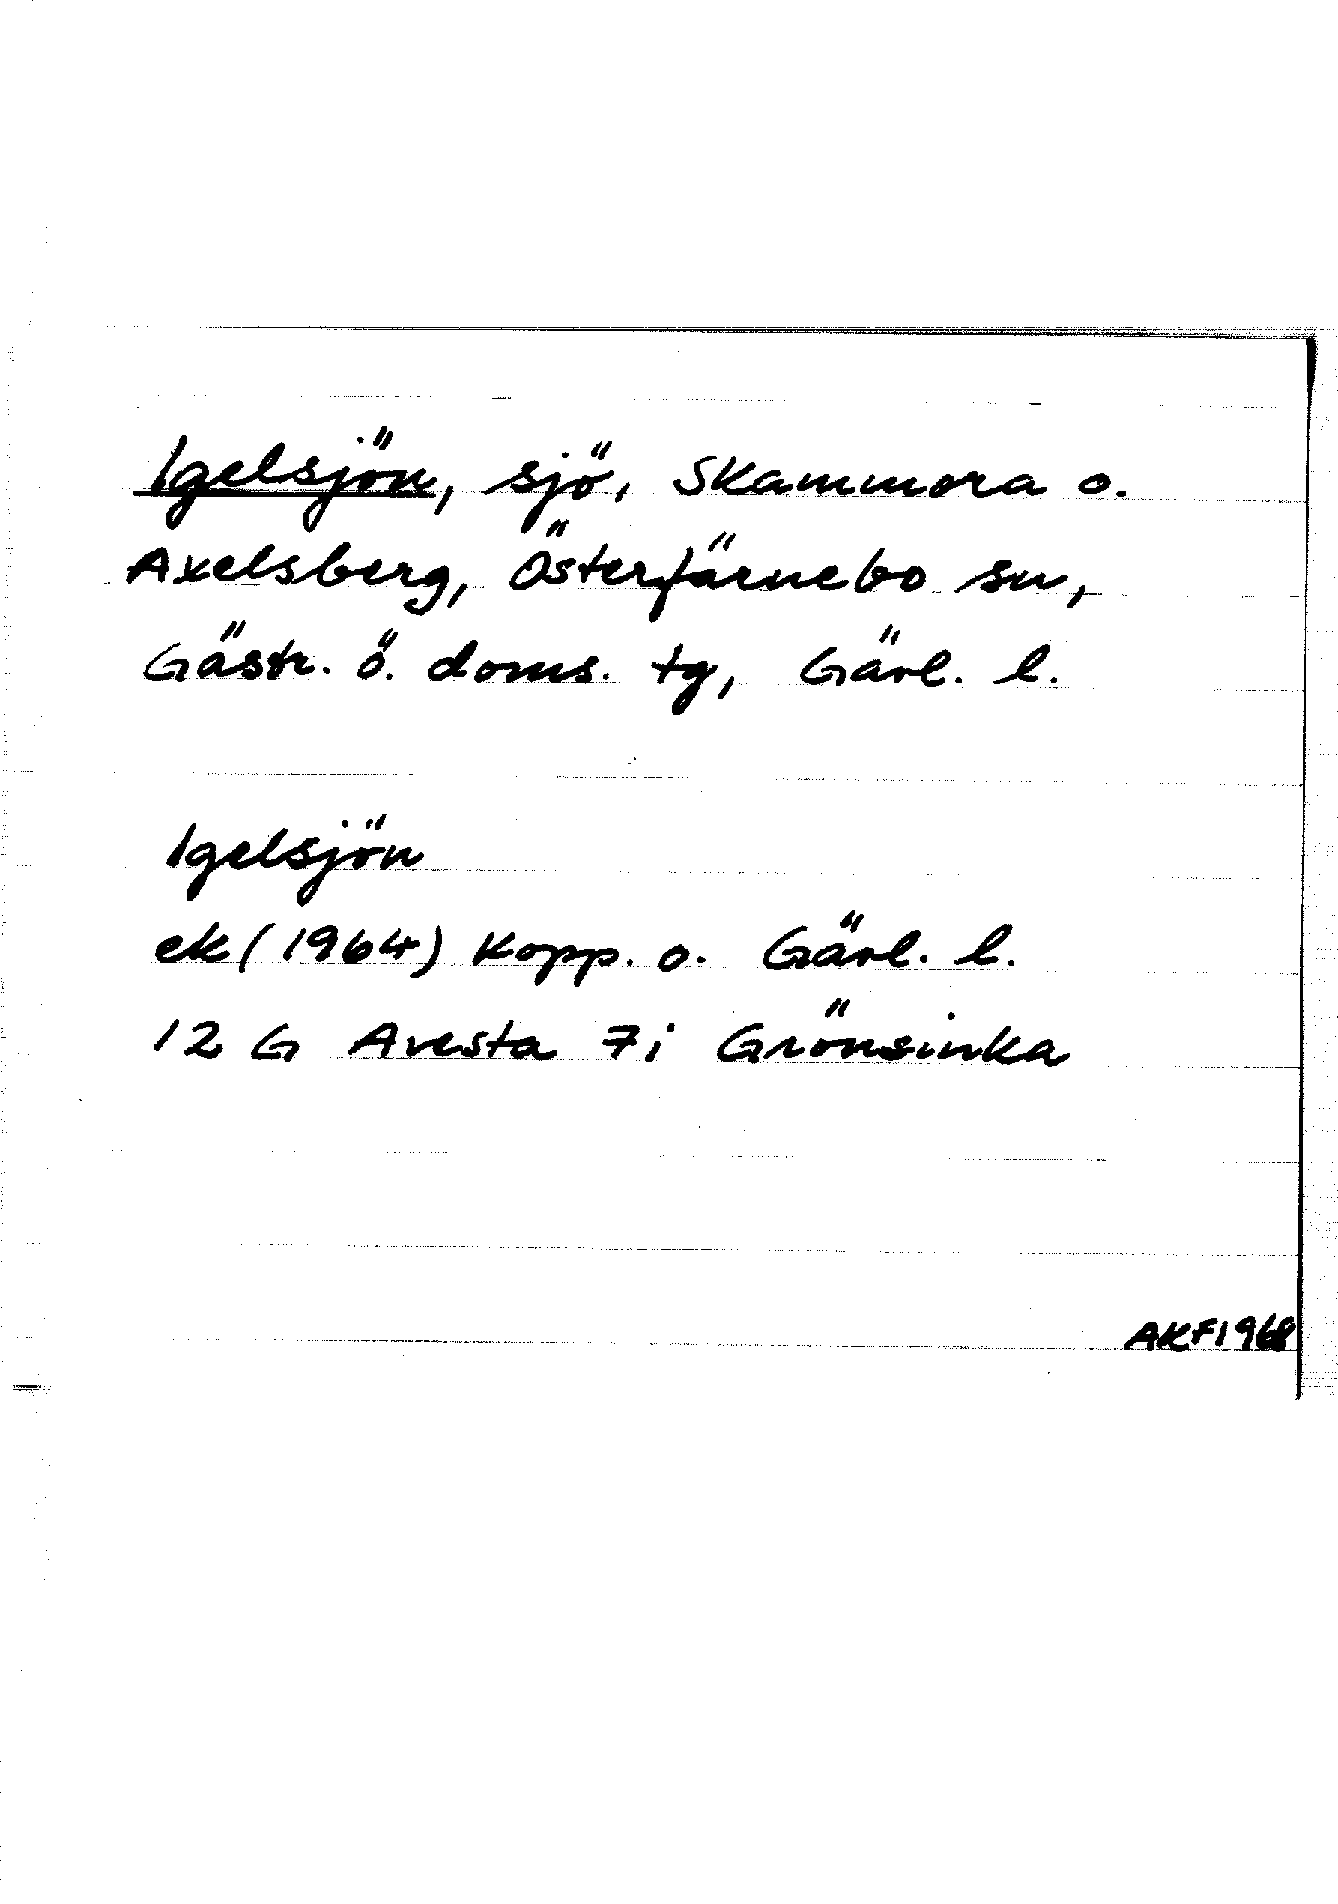 Igelsjön, sjö, Skammora o.
Axelsberg, Österfärnebo sn,
Gästr. ö. doms. tg, Gävl. l.
Igelsjön
ek (1964) Kopp. o. Gävl. l.
12 G Avesta 7i Grönsinka
AKF 1968